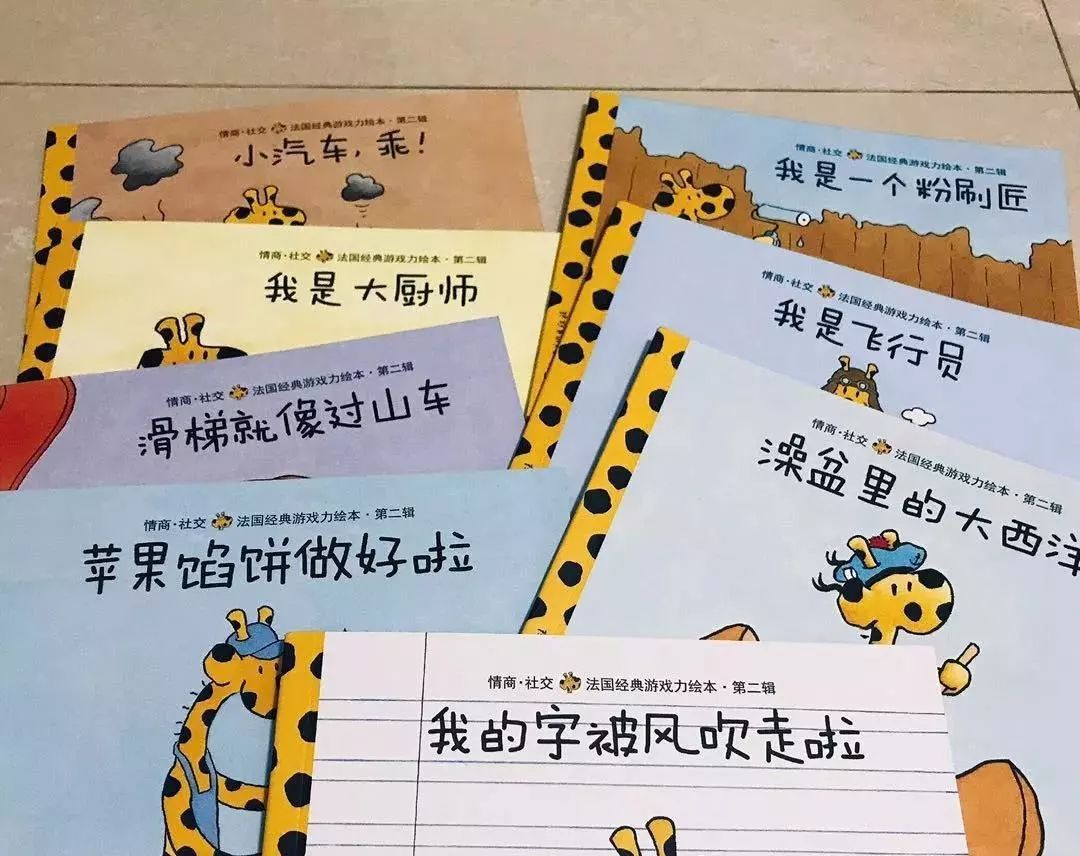 情商·社交 法国经典游戏力绘本·第二辑
小汽车,乖!
情商·社交 法国经典游戏力绘本·第二辑
我是一个粉刷匠
情商·社交 法国经典游戏力绘本·第二辑
我是大厨师
情商·社交 法国经典游戏力绘本·第二辑
我是飞行员
情商·社交 法国经典游戏力绘本·第二辑
滑梯就像过山车
情商·社交 法国经典游戏力绘本·第二辑
澡盆里的大西洋
情商·社交 法国经典游戏力绘本·第二辑
苹果馅饼做好啦
情商·社交 法国经典游戏力绘本·第二辑
我的字被风吹走啦